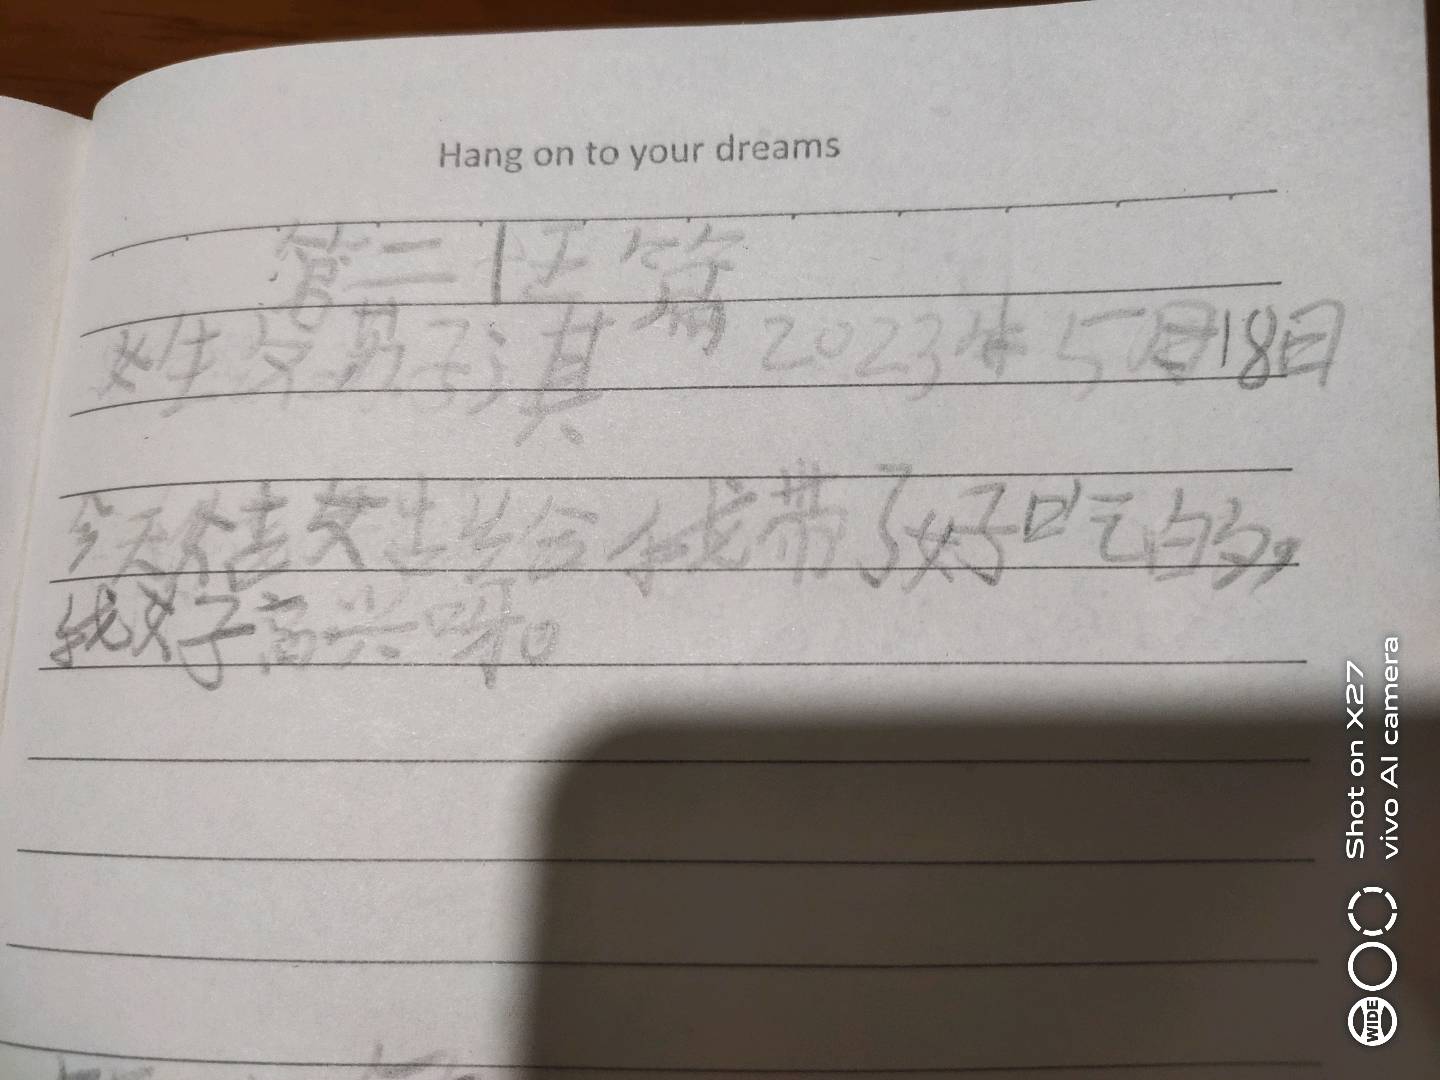 Hang on to your dreams
第二十五篇
2023年5月18日
今天佳女士给我带了好吃的,
我好高兴呀。
Shot on X27
vivo AI camera
WIDE